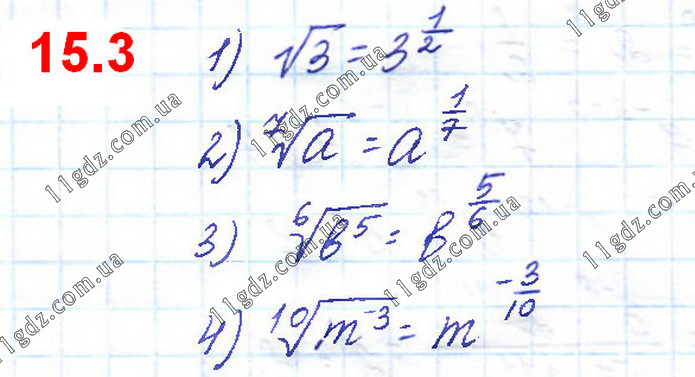 15.3
1) √3 = 3^(1/2)
2) ⁷√a = a^(1/7)
3) ⁶√в⁵ = в^(5/6)
4) ¹⁰√m⁻³ = m^(-3/10)
11gdz.com.ua
11gdz.com.ua
11gdz.com.ua
11gdz.com.ua
11gdz.com.ua
11gdz.com.ua
11gdz.com.ua